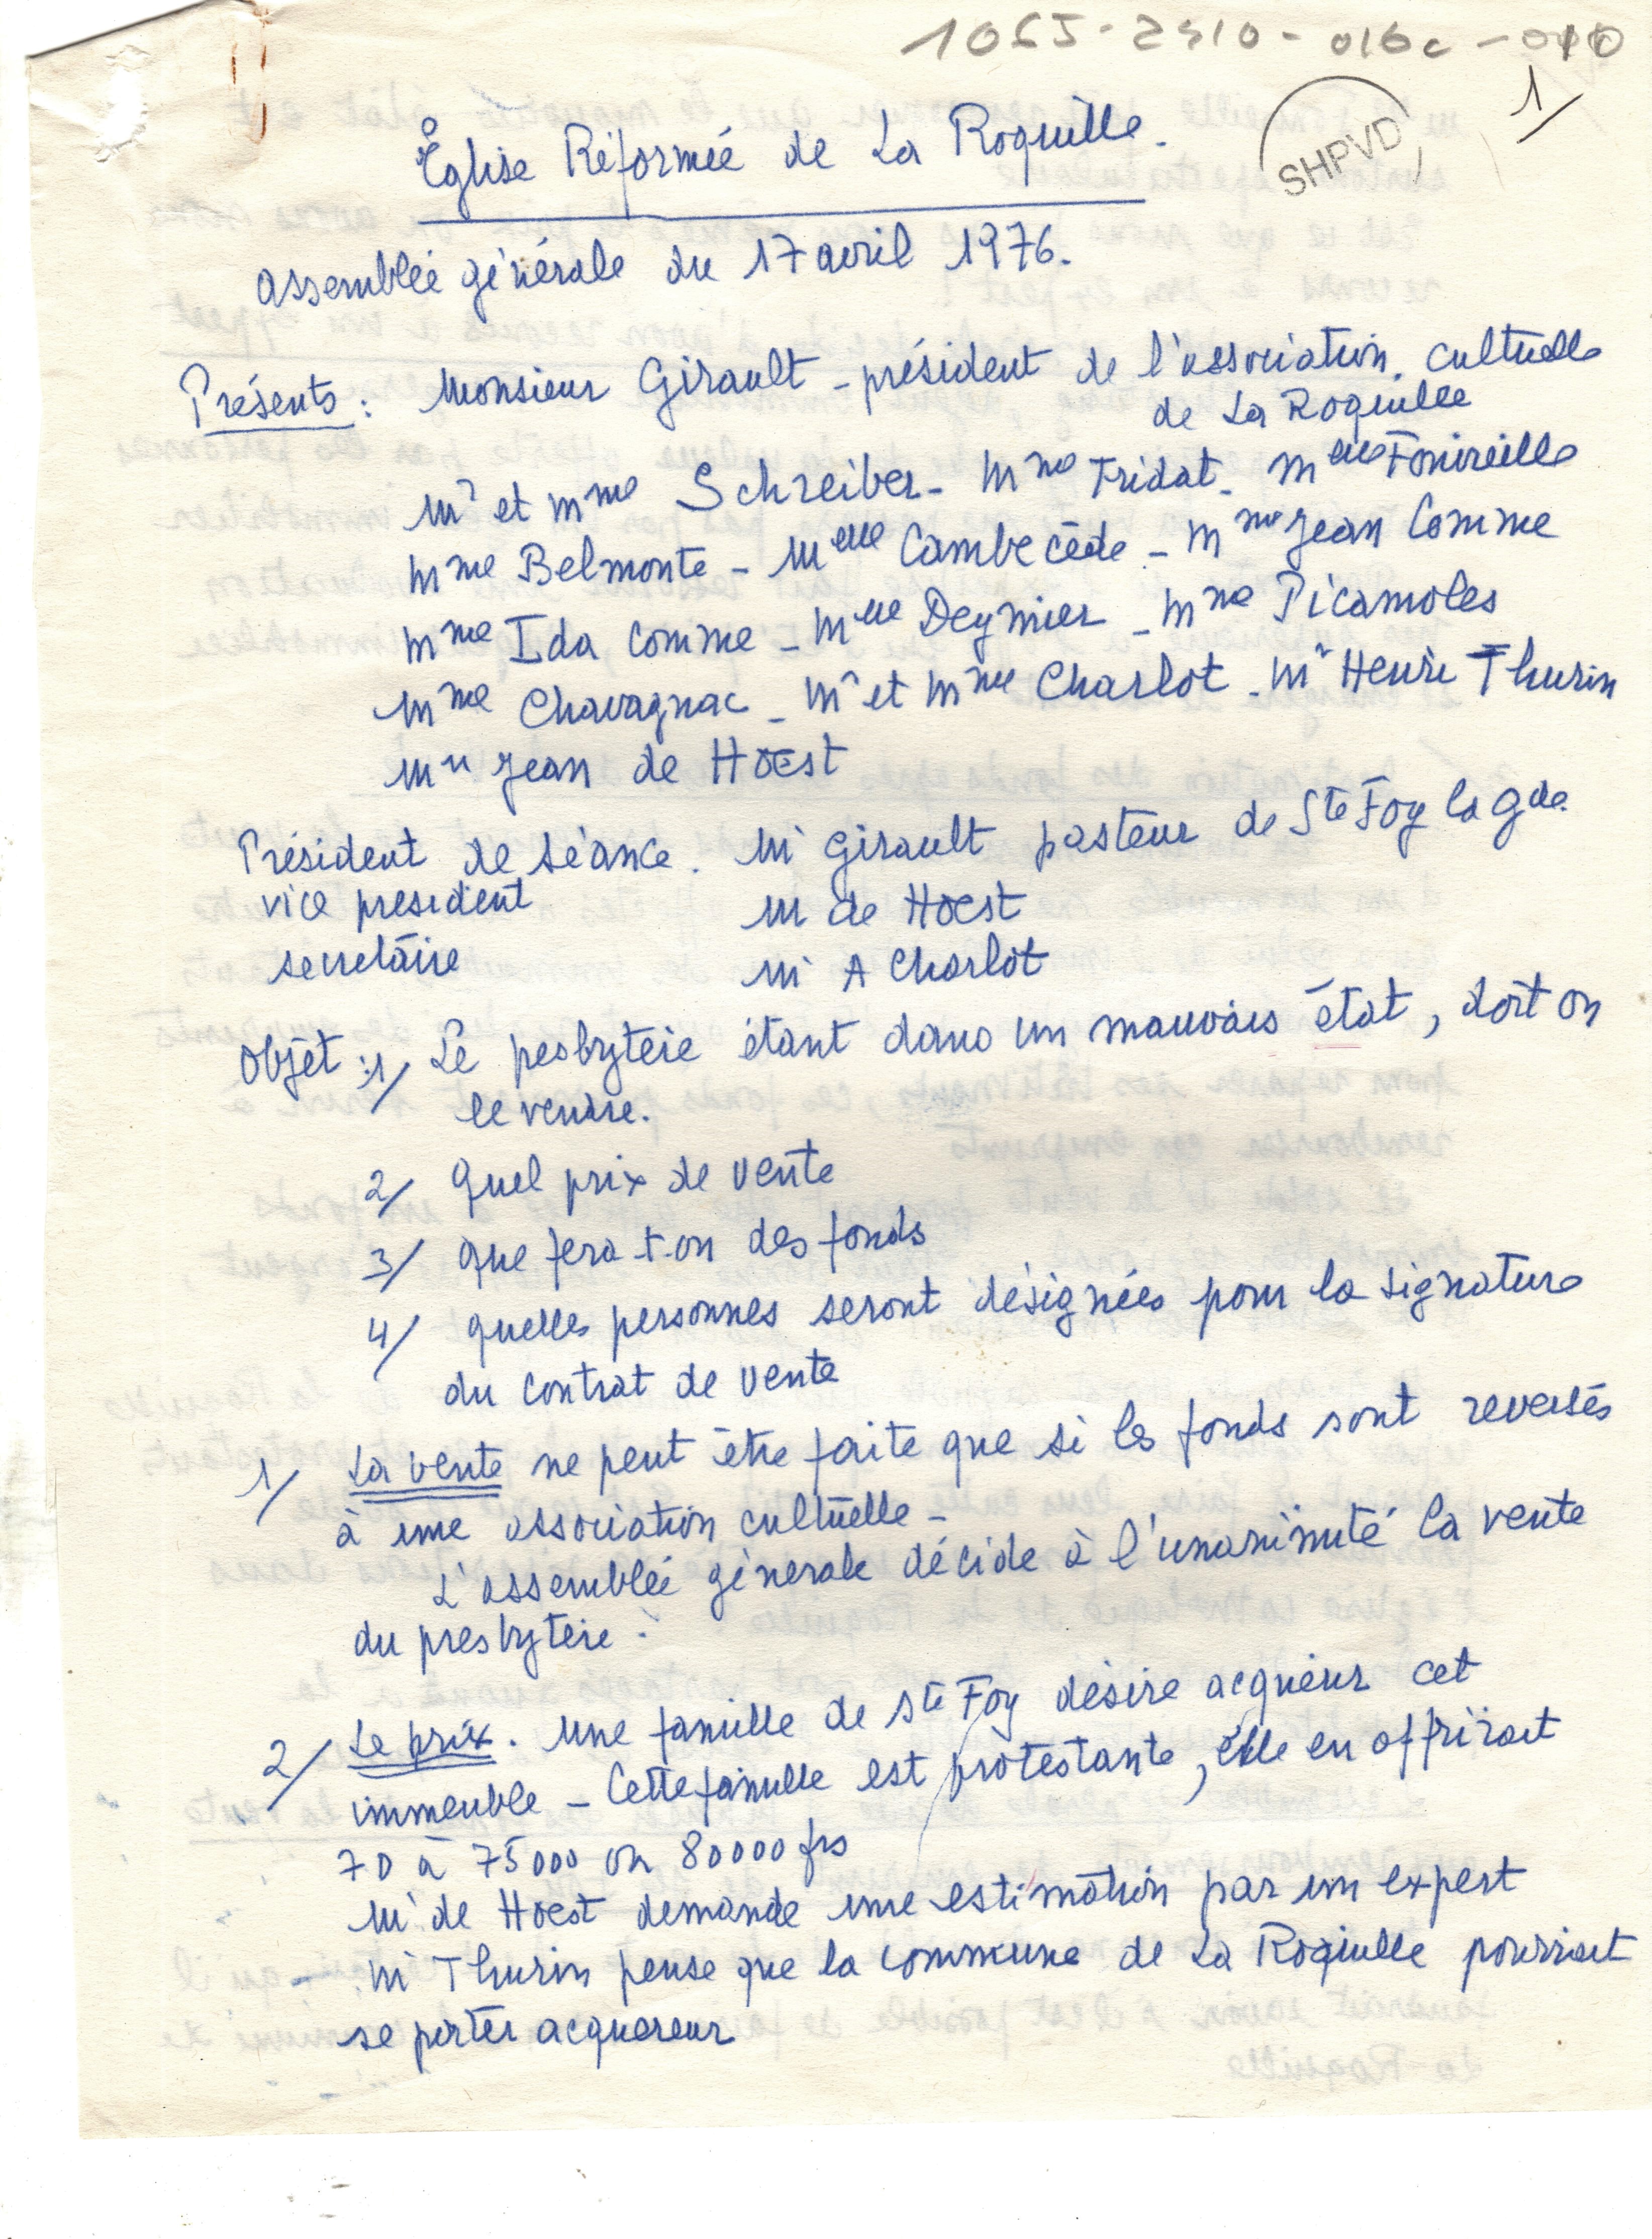 1065-2410-016c-010
1/
SHPVD
Église Réformée de La Roquille.
Assemblée générale du 17 avril 1976.
Présents : Monsieur Girault - président de l'association cultuelle
de La Roquille
Mr et Mme Schreiber - Mme Fridat - Melle Fonvieille
Mme Belmonte - Melle Cambecède - Mme Jean Comme
Mme Ida Comme - Melle Deymier - Mme Picamoles
Mme Chavagnac - Mr et Mme Charlot - Mr Henri Thurin
Mr Jean de Hoest
Président de séance. Mr Girault pasteur de Ste Foy la Gde
vice president Mr de Hoest
secretaire Mr A Charlot
Objet : 1/ Le pesbytère étant dans un mauvais état, doit on
le vendre.
2/ Quel prix de vente
3/ Que fera-t-on des fonds
4/ quelles personnes seront désignées pour la signature
du contrat de vente
1/ La vente ne peut être faite que si les fonds sont reversés
à une association cultuelle -
L'assemblée génerale décide à l'unanimité la vente
du presbytère.
2/ Le prix. Une famille de Ste Foy désire acquérir cet
immeuble - Cette famille est protestante, elle en offrirait
70 à 75000 ou 80000 frs
Mr de Hoest demande une estimation par un expert
- Mr Thurin pense que la commune de La Roquille pourrait
se porter acquereur